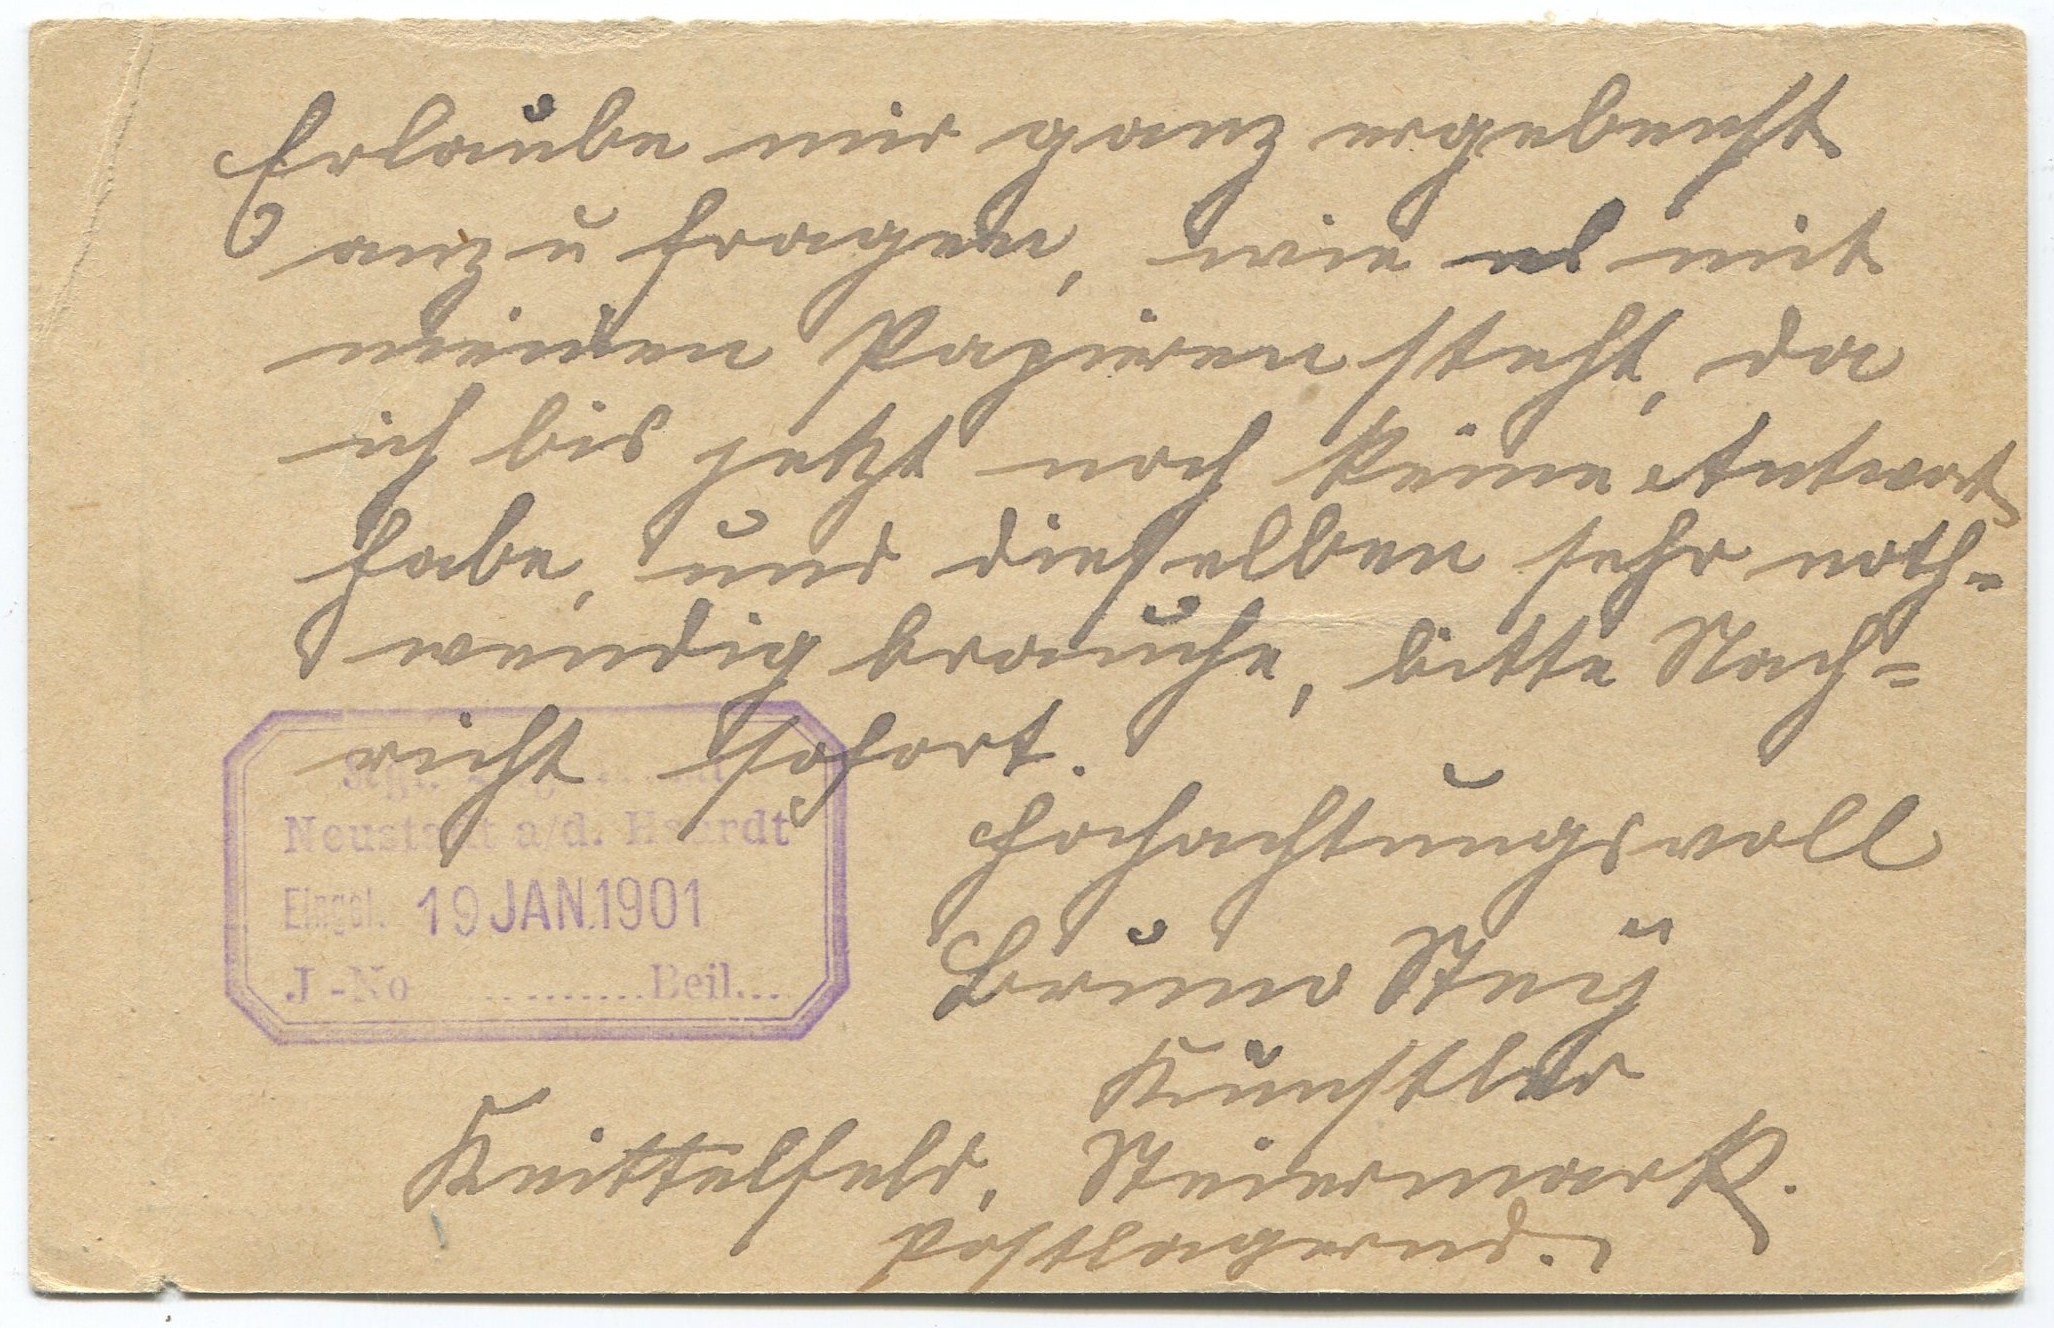 Erlaube mir ganz ergebenst
anzu fragen, wie es mit
meinen Papieren steht, da
ich bis jetzt noch keine Antwort
habe, und dieselben sehr noth-
wendig brauche, bitte Nach=
richt sofort.
Hochachtungsvoll
Bruno Steÿ
Künstler
Knittelfeld, Steiermark.
postlagernd.
Neustadt a/d. Haardt
Eingel. 19 JAN. 1901
J-No ............ Beil....